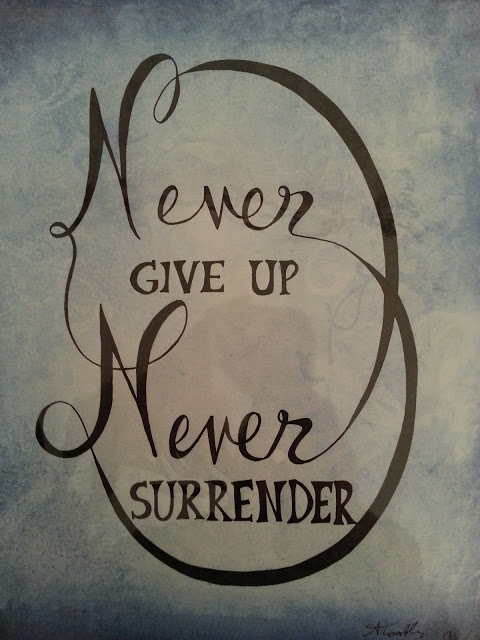 Never
GIVE UP
Never
SURRENDER